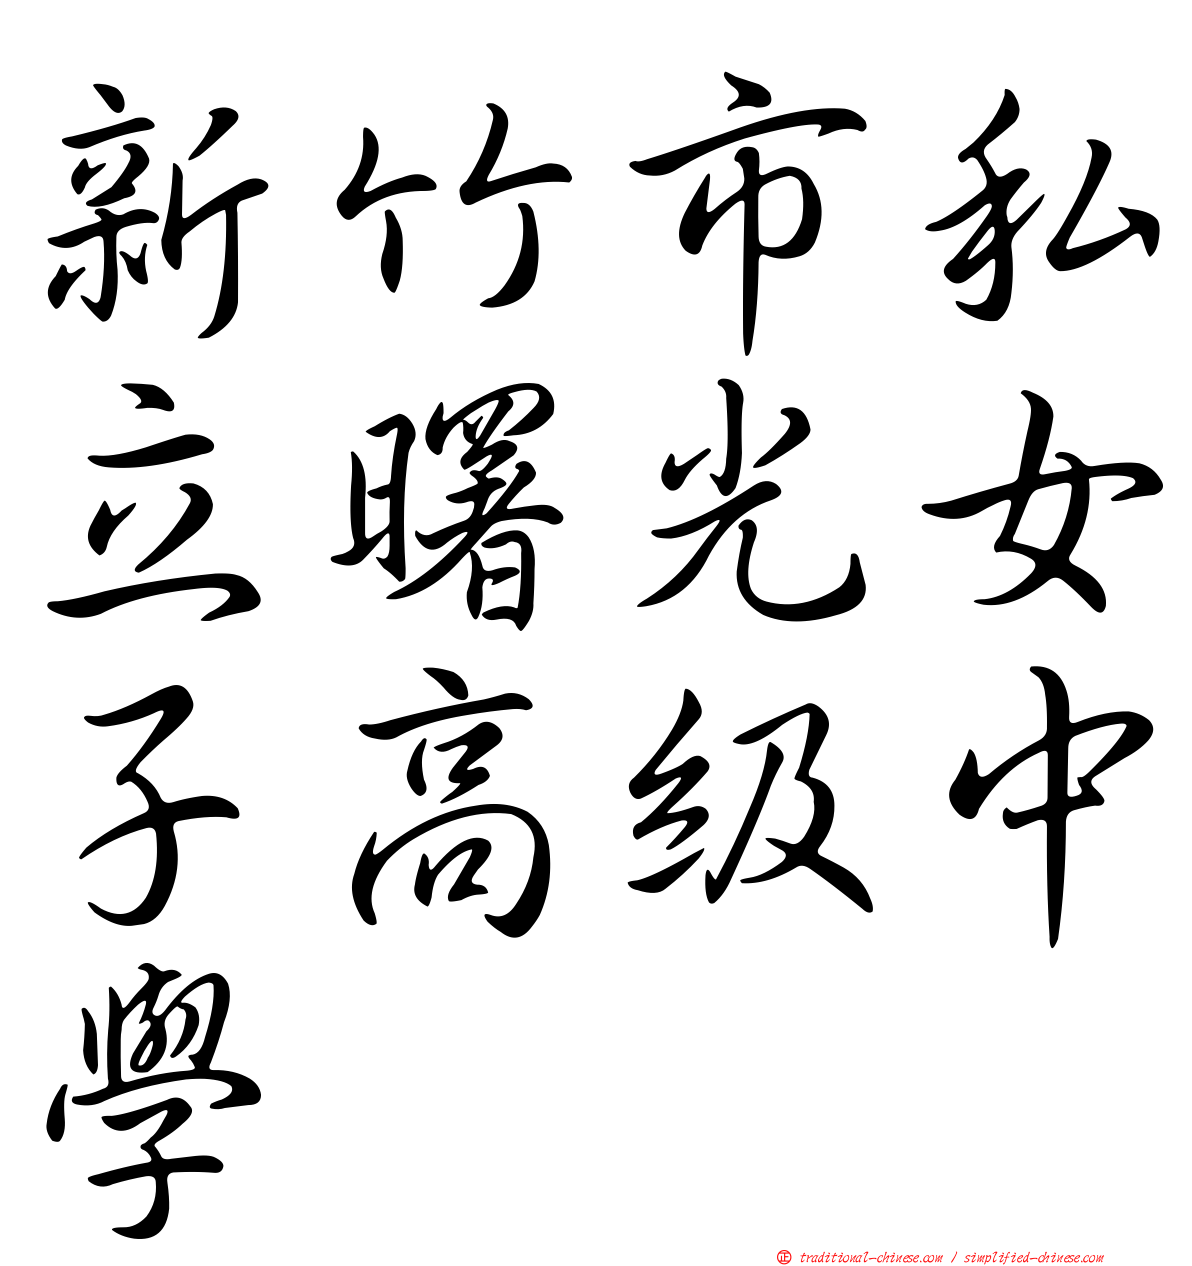 新竹市私
立曙光女
子高級中
學
正 traditional-chinese.com / simplified-chinese.com